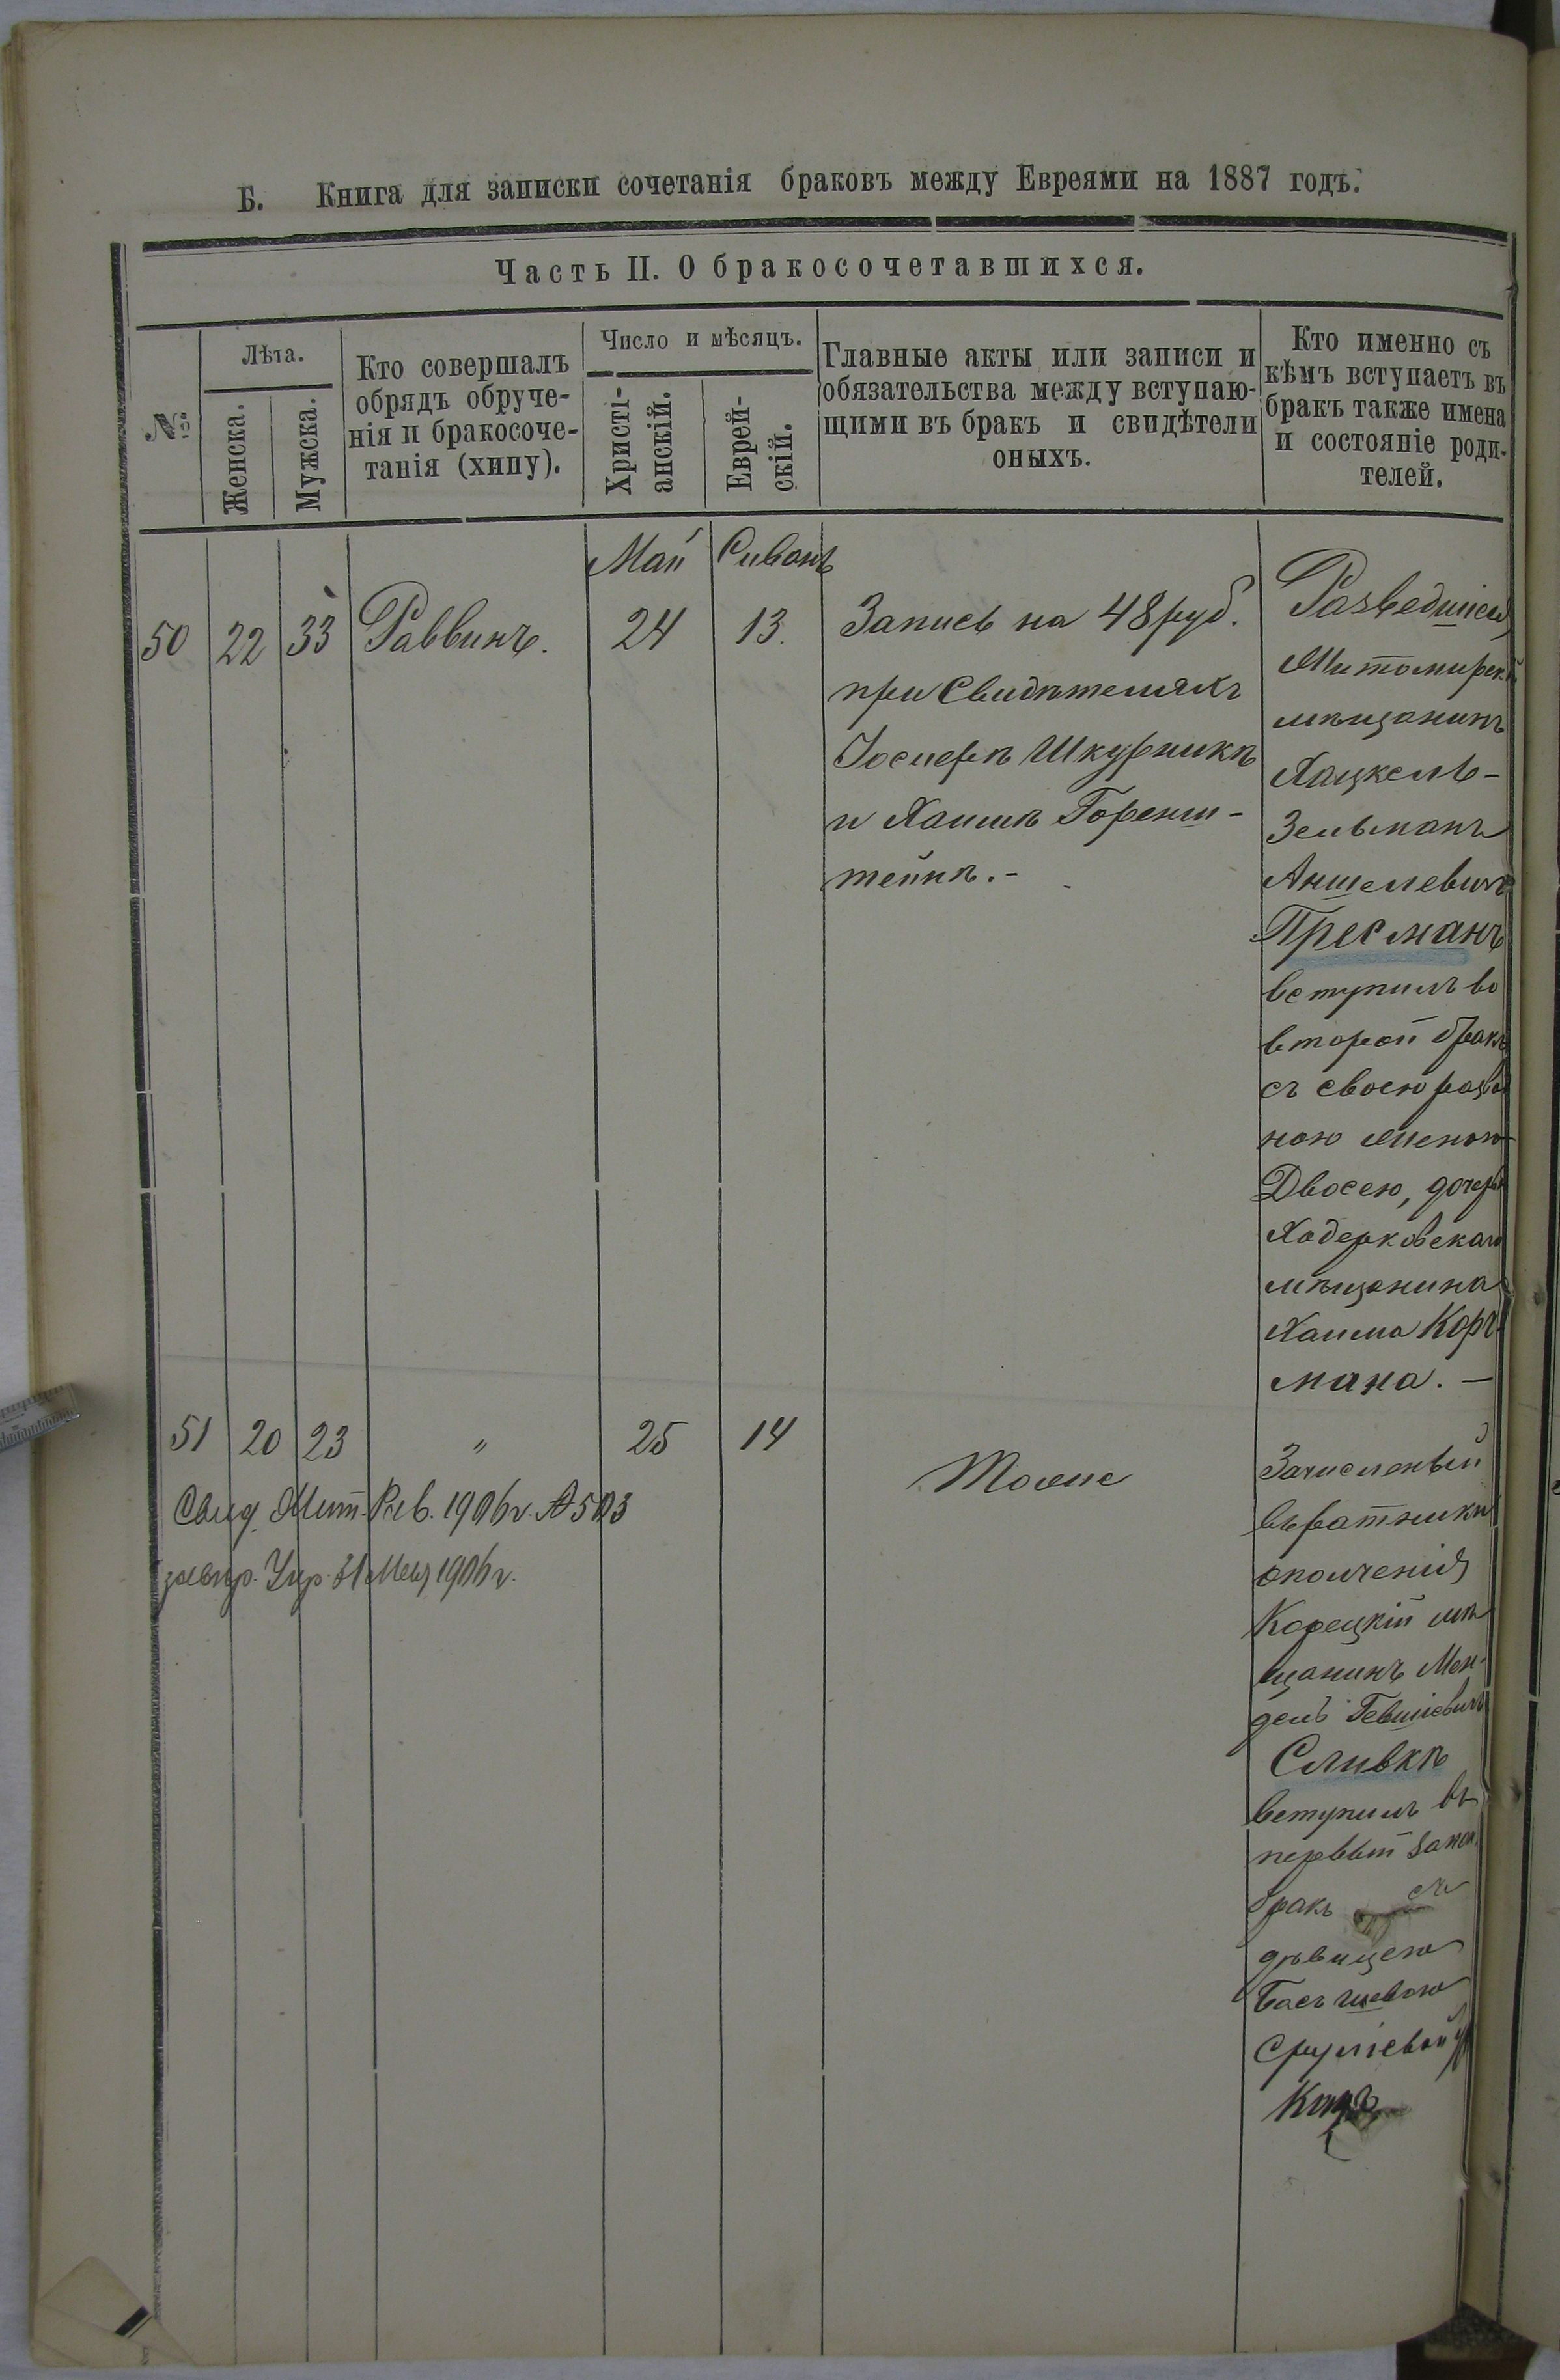 Б. Книга для записки сочетанія браковъ между Евреями на 1887 годъ.
Часть II. О бракосочетавшихся.
№
Лѣта.
Женска.
Мужска.
Кто совершалъ
обрядъ обруче-
нія и бракосоче-
танія (хипу).
Число и мѣсяцъ.
Христі-
анскій.
Еврей-
скій.
Главные акты или записи и
обязательства между вступаю-
щими въ бракъ и свидѣтели
оныхъ.
Кто именно съ
кѣмъ вступаетъ въ
бракъ также имена
и состояніе роди-
телей.
Май Сиванъ
50 22 33 Раввинъ. 24 13.
Запись на 48 руб.
при Свидѣтеляхъ
Іосифѣ Шкурникѣ
и Хаимѣ Горенш-
тейнѣ.-
Разведшійся
Житомирскій
мѣщанинъ
Хацкель-
Зельманъ
Аншелевичъ
Пресманъ
вступилъ во
второй бракъ
съ своею развод
ною женою
Двосею, дочерью
Ходерковскаго
мѣщанина
Хаима Корч-
мана. —
51 20 23 " 25 14
Тоже
Зачисленный
въ ратники
ополченія
Корецкій мѣ
щанинъ Мен-
дель Гевшіевичъ
Сливкѣ
вступилъ въ
первый закон.
бракъ съ
дѣвицею
Басъ-шевою
Сруліевой
Свид. Жит. Рав. 1906 г. № 503
31 Мая 1906 г.